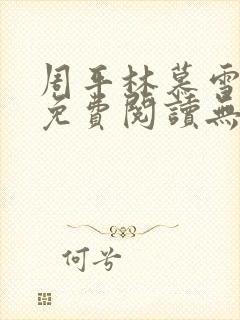 周平林慕雪
免費閱讀無
何兮